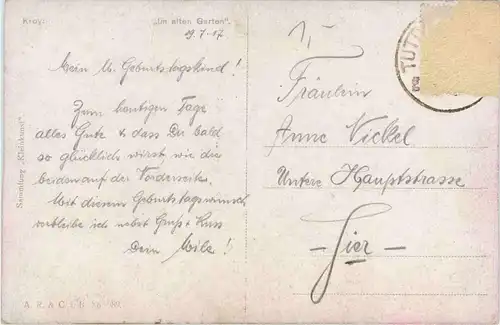 Kray:
„Im alten Garten".
19.7.17
Mein l. Geburtstagskind!
Zum heutigen Tage
alles Gute & dass Du bald
so glücklich wirst, wie die
beiden auf der Vorderseite.
Mit diesem Geburtstagswunsch
verbleibe ich nebst Gruss + Kuss
Dein Mile!
Sammlung „Kleinkunst"
Fräulein
Anne Vickel
Untere Hauptstrasse
- Hier -
TUTT